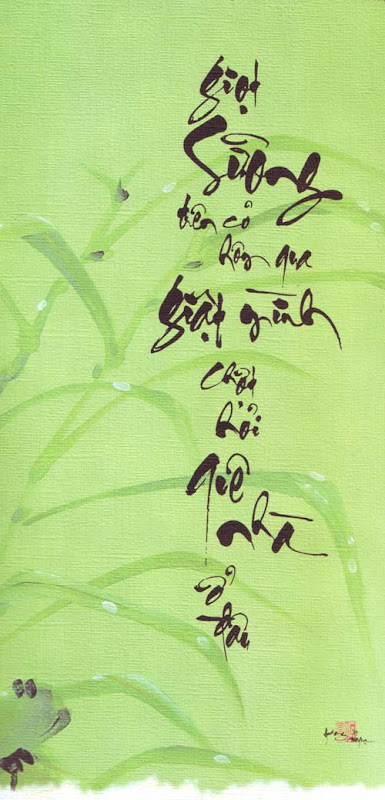 giọt
sương
trên cỏ
hôm qua
giật mình
chợt
hỏi
quê
nhà
ở
đâu